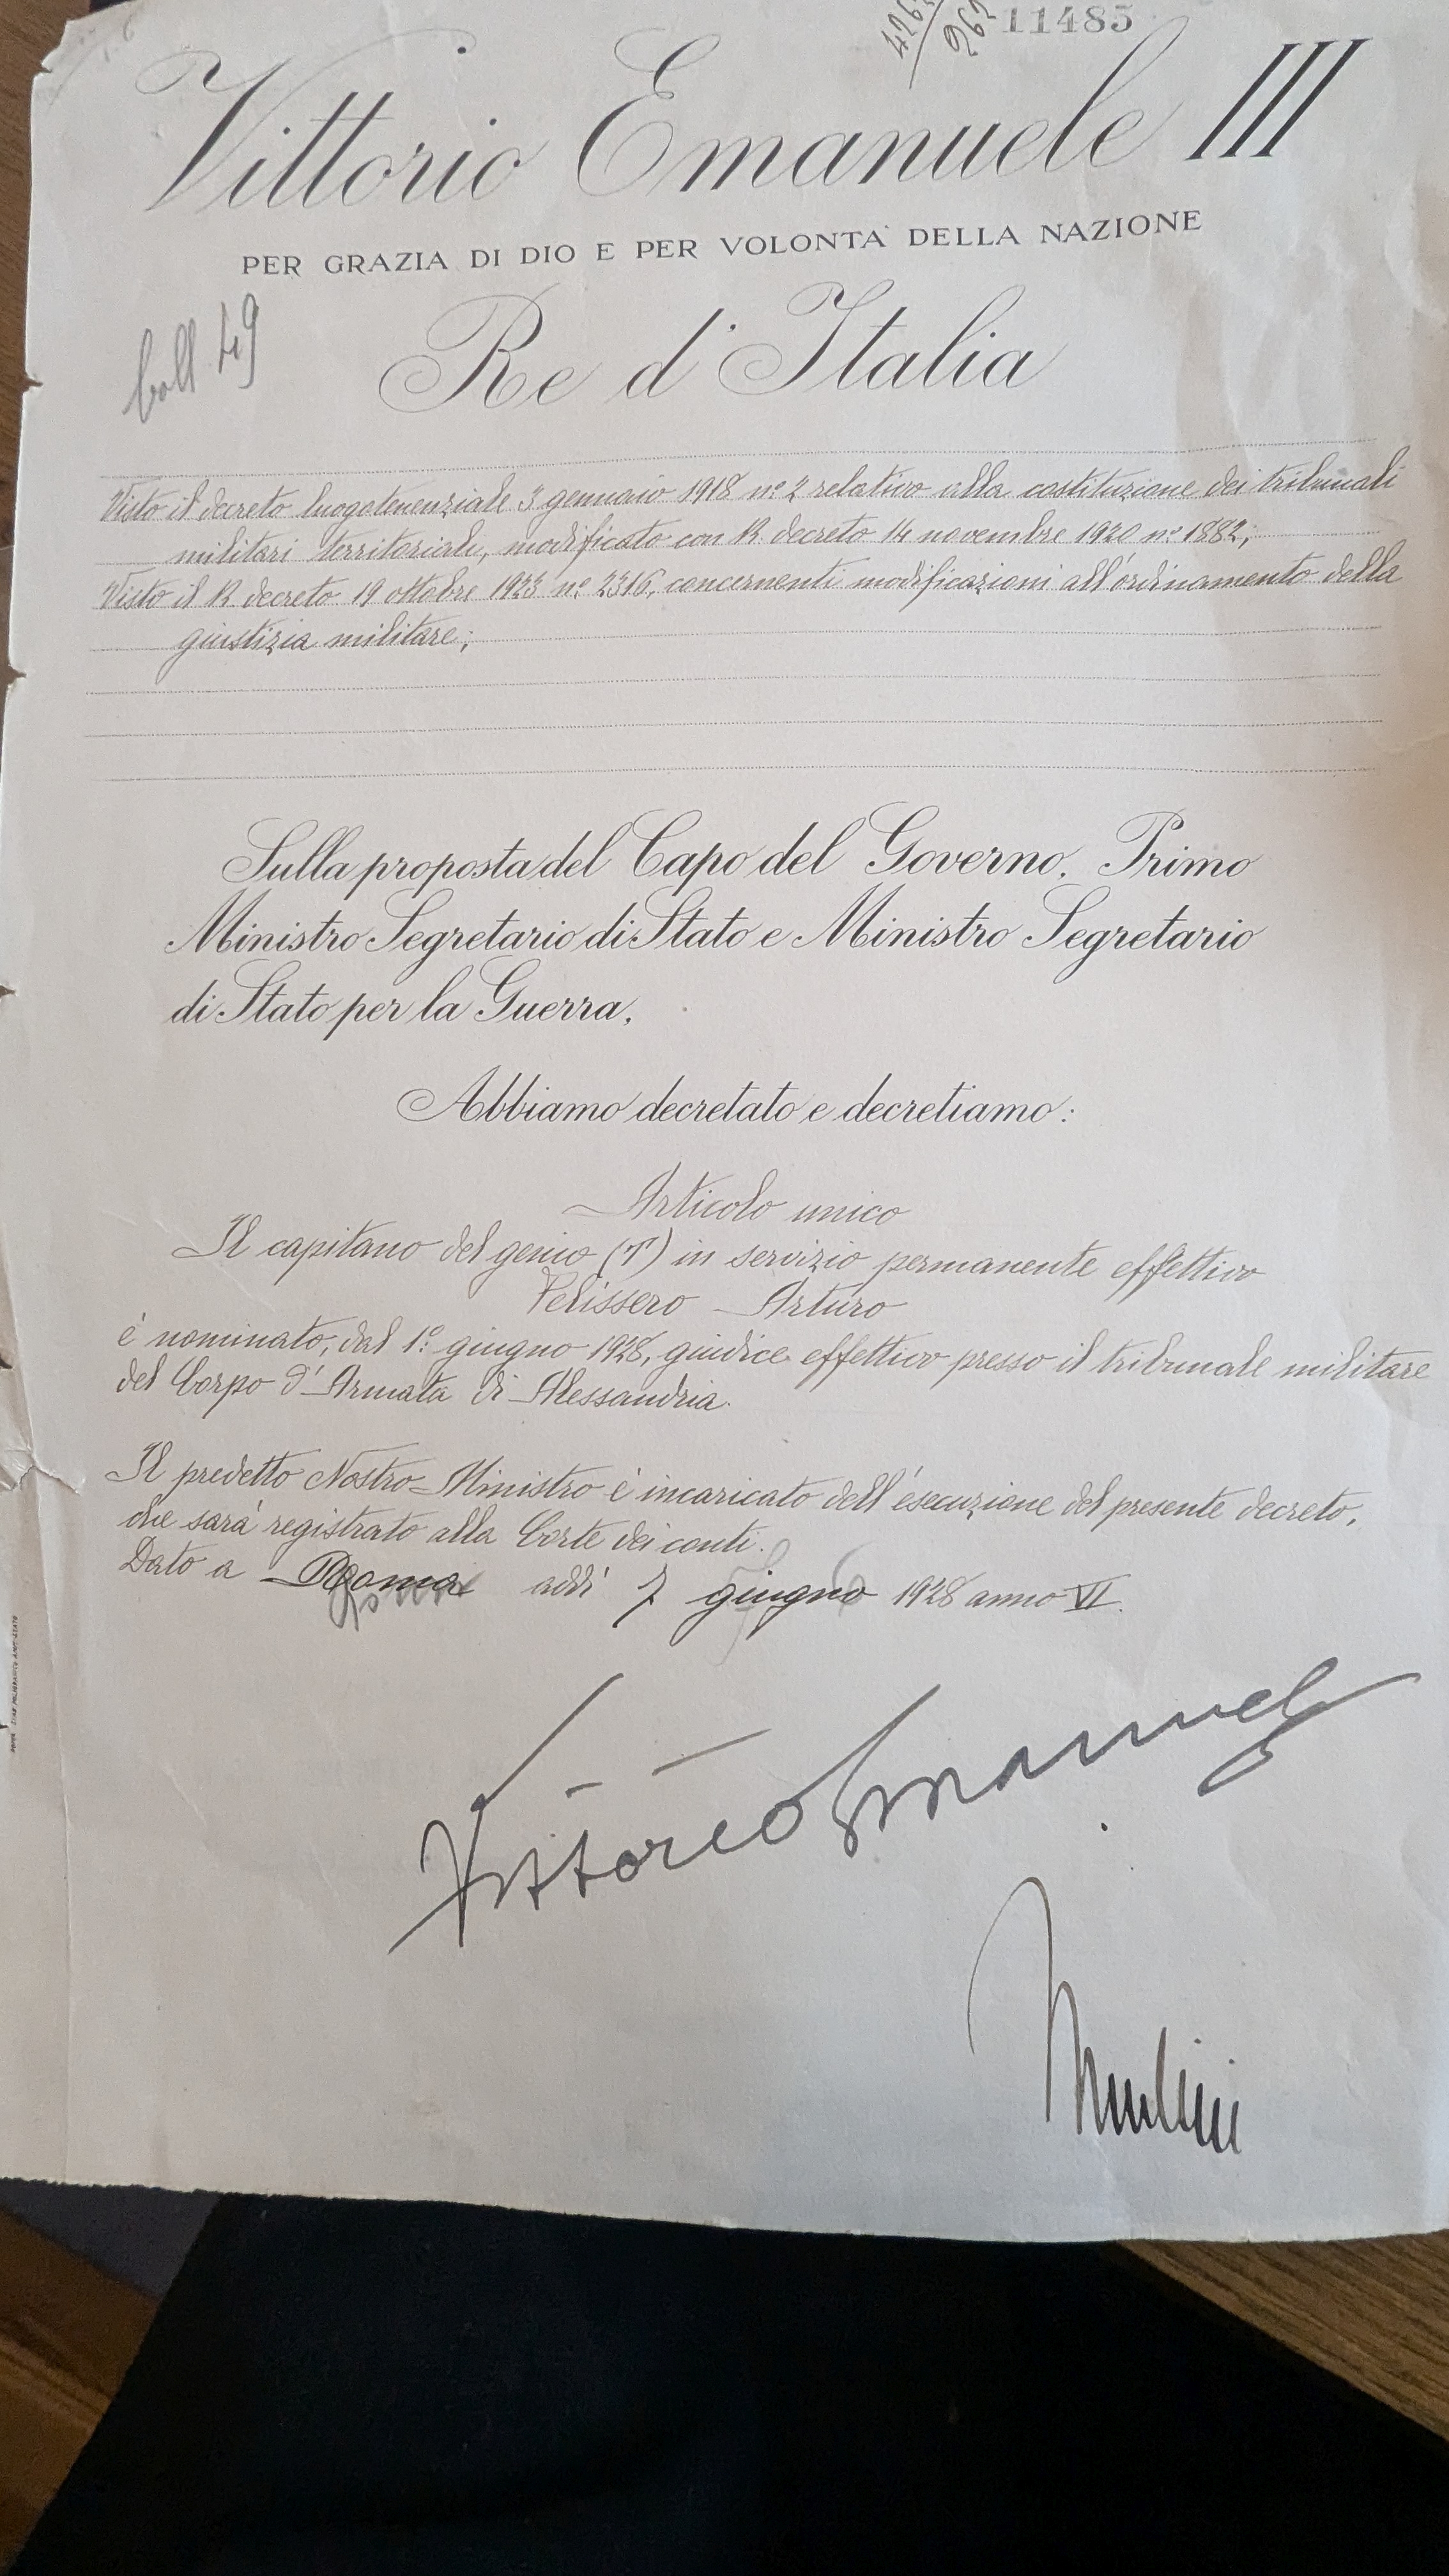 11485
Vittorio Emanuele III
PER GRAZIA DI DIO E PER VOLONTA' DELLA NAZIONE
Re d'Italia
boll 49
Visto il decreto luogotenenziale 3 gennaio 1918 n.º 2 relativo alla costituzione dei tribunali
militari territoriali, modificato con R. decreto 14 novembre 1920 n.º 1882;
Visto il R decreto 19 ottobre 1923 n.º 2316, concernenti modificazioni all'ordinamento della
giustizia militare;
Sulla proposta del Capo del Governo, Primo
Ministro Segretario di Stato e Ministro Segretario
di Stato per la Guerra,
Abbiamo decretato e decretiamo:
Articolo unico
Il capitano del genio (T) in servizio permanente effettivo
Pelissero Arturo
è nominato, dal 1º giugno 1928, giudice effettivo presso il tribunale militare
del Corpo d'Armata di Alessandria.
Il predetto Nostro Ministro è incaricato dell'esecuzione del presente decreto,
che sarà registrato alla Corte dei conti.
Dato a Roma addì 7 giugno 1928 anno VI.
Vittorio Emanuele
Mussolini